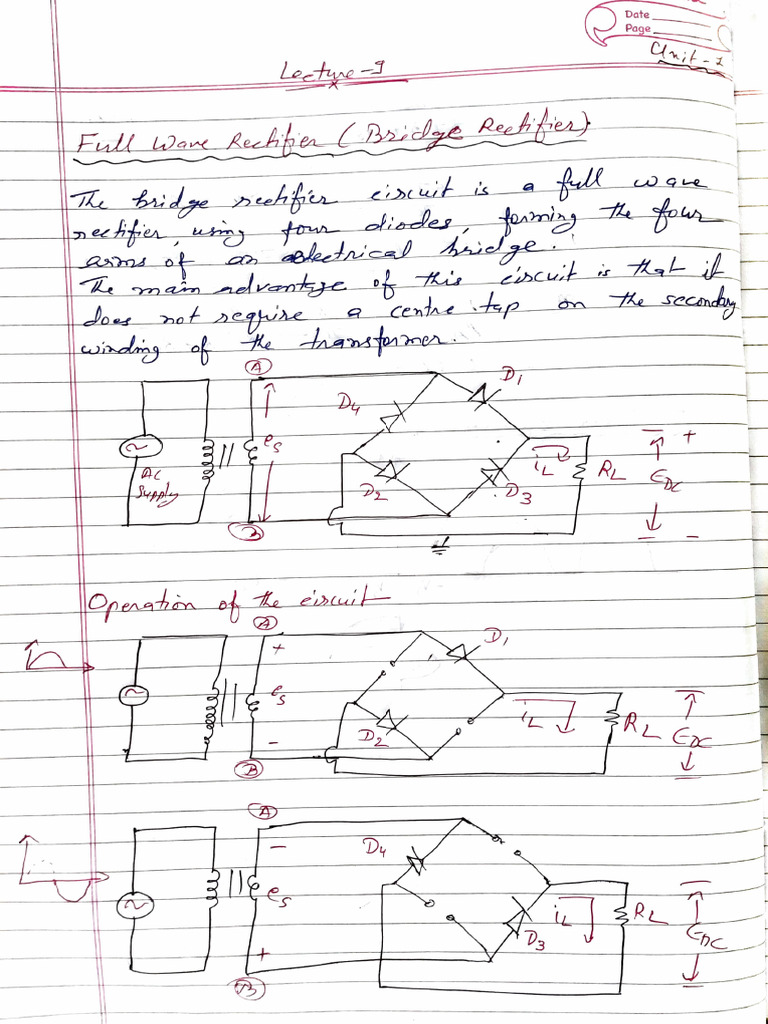 Date
Page
Unit-1
Lecture-9
Full Wave Rectifier (Bridge Rectifier)
The bridge rectifier circuit is a full wave
rectifier, using four diodes, forming the four
arms of an electrical bridge.
The main advantage of this circuit is that it
does not require a centre tap on the secondary
winding of the transformer.
A
D1
D4
es
AC
Supply
iL
RL
EDC
+
D2
D3
B
-
Operation of the circuit
A
+
D1
es
iL
RL
EDC
D2
-
B
A
-
D4
es
iL
RL
EDC
D3
+
B